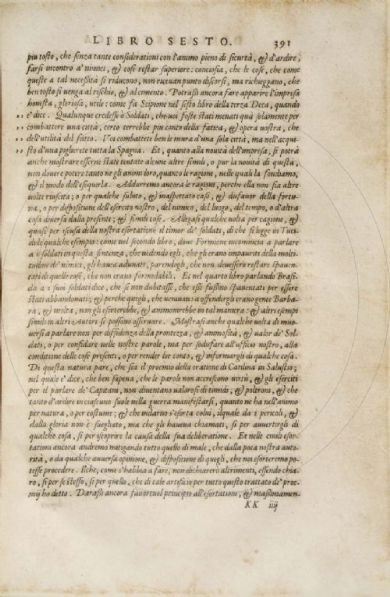 LIBRO SESTO. 391
piu tosto, che senza tante considerationi con l'animo pieno di sicurtà, & d'ardire,
farsi incontro a' nimici, & cosi restar superiore: conciosia, che le cose, che come
queste a tal necessità si riducono, non riceuan punto discorsi, ma richeggano, che
ben tosto si uenga al rischio, & al cimento. Potrassi ancora fare apparire l'impresa
honesta, gloriosa, utile: come fa Scipione nel sesto libro della terza Deca, quando
e' dice. Qualunque credesse ò Soldati, che uoi foste stati menati quà solamente per
combattere una città, certo terrebbe piu conto della fatica, & opera uostra, che
dell'utilità del fatto. Voi combattete ben le mura d'una sola città, ma nell'acqui-
sto d'una pigliarete tutta la Spagna. Et, quanto alla nouità dell'impresa, si potrà
anche mostrare essersi state tentate alcune altre simili, o pur la nouità di questa,
non douere potere tanto ne gli animi loro, quanto le ragioni, nelle quali la fondiamo,
& il modo dell'esequirla. Addurremo ancora le ragioni, perche ella non sia altre
uolte riuscita; o per qualche subito, & inaspettato caso, & disfauor della fortu-
na, o per dispositione dell'esercito nostro, del nimico, del luogo, del tempo, o d'altra
cosa diuersa dalla presente; & simili cose. Allegasi qualche uolta per cagione, &
quasi per scusa della nostra esortatione il timor de' soldati, di che si legge in Tuci-
dide qualche esempio: come nel secondo libro, doue Formione incomincia a parlare
a i soldati in questa sentenza, che uedendo egli, che gli erano impauriti della molti-
tudine de' nimici, gli haueua adunati, parendogli, che non douessero restare spauen-
tati di quelle cose, che non erano formidabili. Et nel quarto libro parlando Brasi-
da a i suoi soldati dice, che se non dubitasse, che essi fussino spauentati per essere
stati abbandonati; & perche quegli, che ueniuano a offendergli erano gente Barba-
ra, & molta, non gli esorterebbe, & ammonirebbe in tal maniera: & altri esempi
simili in altri Autori si possono osseruare. Mostrasi anche qualche uolta di muo-
uersi a parlare non per diffidenza della prontezza, & animosità, & ualor de' Sol-
dati, o per confidare nelle nostre parole, ma per sodisfare all'ufficio nostro, alla
conditione delle cose presenti, o per render lor conto, & informargli di qualche cosa.
Di questa natura pare, che sia il proemio della oratione di Catilina in Salustio;
nel quale e' dice, che ben sapeua, che le parole non accrescono uirtù, & gli eserciti
per il parlare de' Capitani, non diuentano ualorosi di timidi, & poltroni, & che
tanto d'ardire in ciascuno suole nella guerra manifestarsi, quanto ne ha nell'animo
per natura, o per costume; & che indarno s'esorta colui, il quale da i pericoli, &
dalla gloria non è suegliato, ma che gli haueua chiamati, si per auuertirgli di
qualche cosa, si per iscoprire la causa della sua deliberatione. Et nelle ciuili esor-
tationi ancora andremo mitigando tutto quello di male, che dalla poca nostra auto-
rità, o da qualche auuersa opinione, & dispositione di quegli, che noi esorteremo po-
tesse procedere. Ilche, come s'habbia a fare, non dichiarerò altrimenti, essendo chia-
ro, si per se stesso, si per quello, che di tale artificio per tutto questo trattato de' proe-
mij ho detto. Darassi ancora fauoreuol principio all'esortatione, & massimamen-
KK iiij